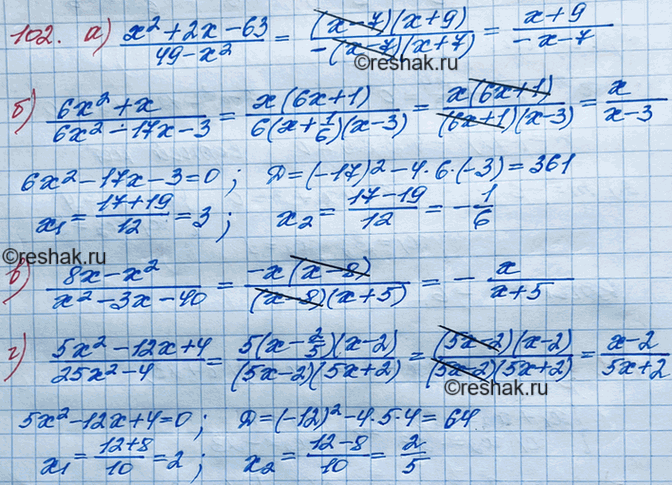 102. а) (x² + 2x - 63)/(49 - x²) = ((x-7)(x+9))/(-(x-7)(x+7)) = (x+9)/(-x-7)
©reshak.ru
б) (6x² + x)/(6x² - 17x - 3) = (x(6x+1))/(6(x+1/6)(x-3)) = (x(6x+1))/((6x+1)(x-3)) = x/(x-3)
6x² - 17x - 3 = 0; D = (-17)² - 4·6·(-3) = 361
x₁ = (17+19)/12 = 3; x₂ = (17-19)/12 = -1/6
©reshak.ru
в) (8x - x²)/(x² - 3x - 40) = (-x(x-8))/((x-8)(x+5)) = - x/(x+5)
г) (5x² - 12x + 4)/(25x² - 4) = (5(x - 2/5)(x-2))/((5x-2)(5x+2)) = ((5x-2)(x-2))/((5x-2)(5x+2)) = (x-2)/(5x+2)
©reshak.ru
5x² - 12x + 4 = 0; D = (-12)² - 4·5·4 = 64
x₁ = (12+8)/10 = 2; x₂ = (12-8)/10 = 2/5